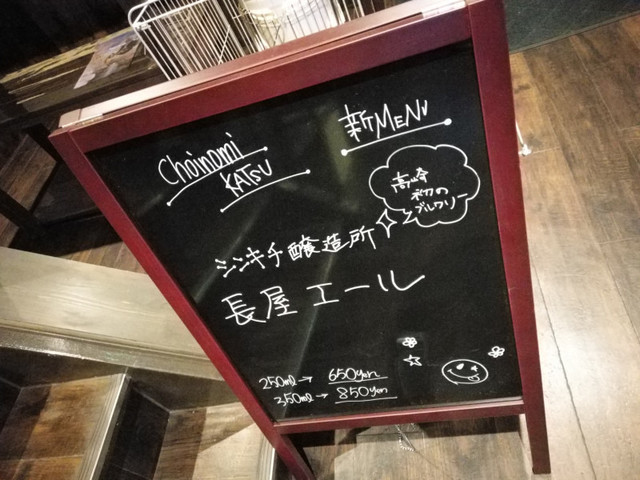 Choinomi
KATSU
新MENU
高崎
初の
ブルワリー
シンキチ醸造所
長屋 エール
250ml→ 650yen
350ml→ 850yen